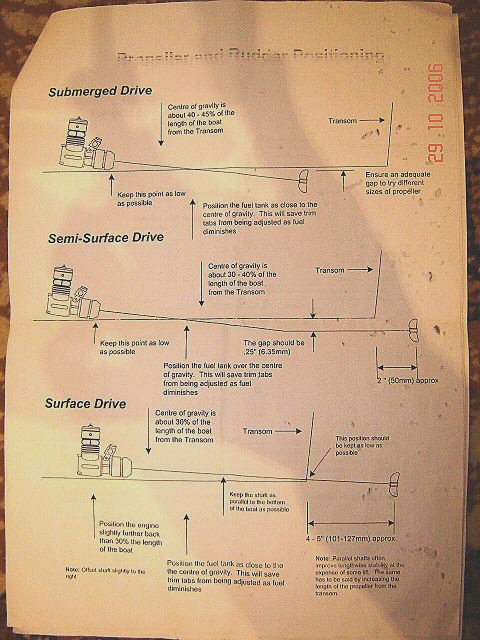 Propeller and Rudder Positioning
29 10 2006
Submerged Drive
Centre of gravity is
about 40 - 45% of the
length of the boat
from the Transom
Transom
Keep this point as low
as possible
Position the fuel tank as close to the
centre of gravity. This will save trim
tabs from being adjusted as fuel
diminishes
Ensure an adequate
gap to try different
sizes of propeller
Semi-Surface Drive
Centre of gravity is
about 30 - 40% of the
length of the boat
from the Transom
Transom
Keep this point as low
as possible
The gap should be
.25" (6.35mm)
Position the fuel tank over the centre
of gravity. This will save trim tabs
from being adjusted as fuel
diminishes
2 " (50mm) approx
Surface Drive
Centre of gravity is
about 30% of the
length of the boat
from the Transom
Transom
This position should
be kept as low as
possible
Keep the shaft as
parallel to the bottom
of the boat as possible
Position the engine
slightly further back
than 30% the length
of the boat
4 - 5" (101-127mm) approx.
Position the fuel tank as close to the
the centre of gravity. This will save
trim tabs from being adjusted as fuel
diminishes
Note: Offset shaft slightly to the
right
Note: Parallel shafts often
improve lengthwise stability at the
expense of some lift. The same
has to be said by increasing the
length of the propeller from the
transom.